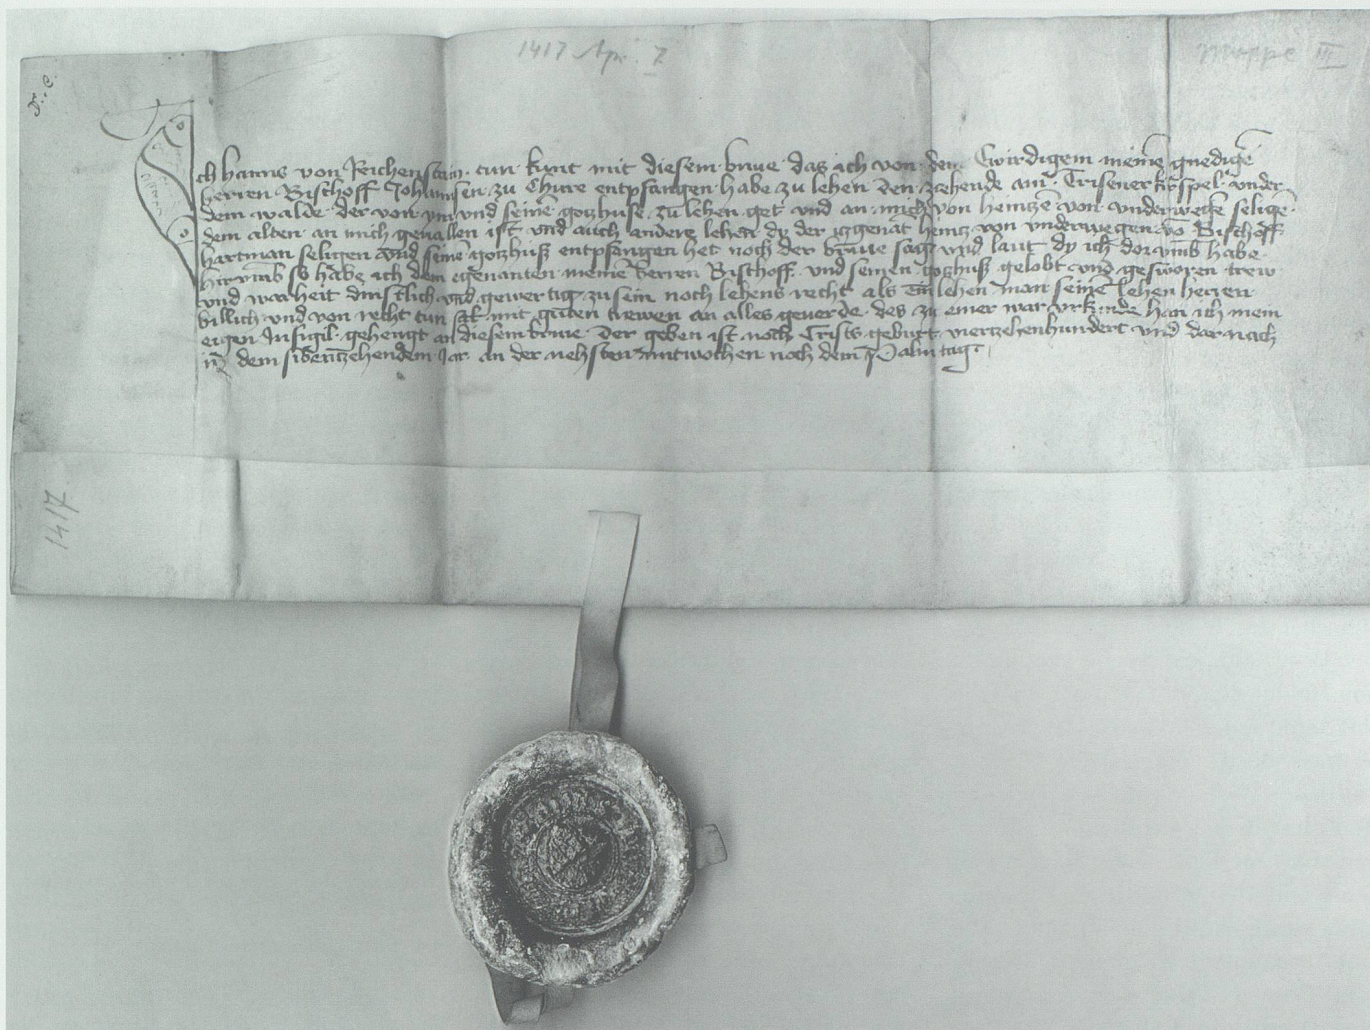 1417 Apr. 7
Mappe III
Ich hanns von Reichenstain tun kunt mit diesem brive das ich von dem Erwirdigem meinē gnedigē
herren Bischoff Johannsen zu Chure entpfangen habe zu lehen den zehende am Trisener kirspel vnder
dem walde der von im vnd seinē gotzhuse zu lehen get vnd an mich von heintze von vnderwegē seligē
dem alten an mich geuallen ist vnd auch andere lehen dy der iczgenāt heintz von vnderwegen vō Bischoff
hartman seligen vnd seinē gotzhuß entpfangen het noch der briue sag vnd laut dy ich dorvmb habe
hirvmb so habe ich dem egenanten meinē herren Bischoff vnd seinen gotzhuß gelobt vnd gesworen trew
vnd warheit dinstlich vnd gewertig zu sein noch lehens recht als ein lehen man seinē lehen herren
billich vnd von recht tun sol mit guten trewen an alles geuerde des zu einer war vrkunde han ich mein
eigen Insigil gehengt an diesem brive Der geben ist noch Crists geburt vierzehenhundert vnd dar nach
in dem sibenzehendem Jar an der nehsten mitwochen noch dem Palm tag
1417